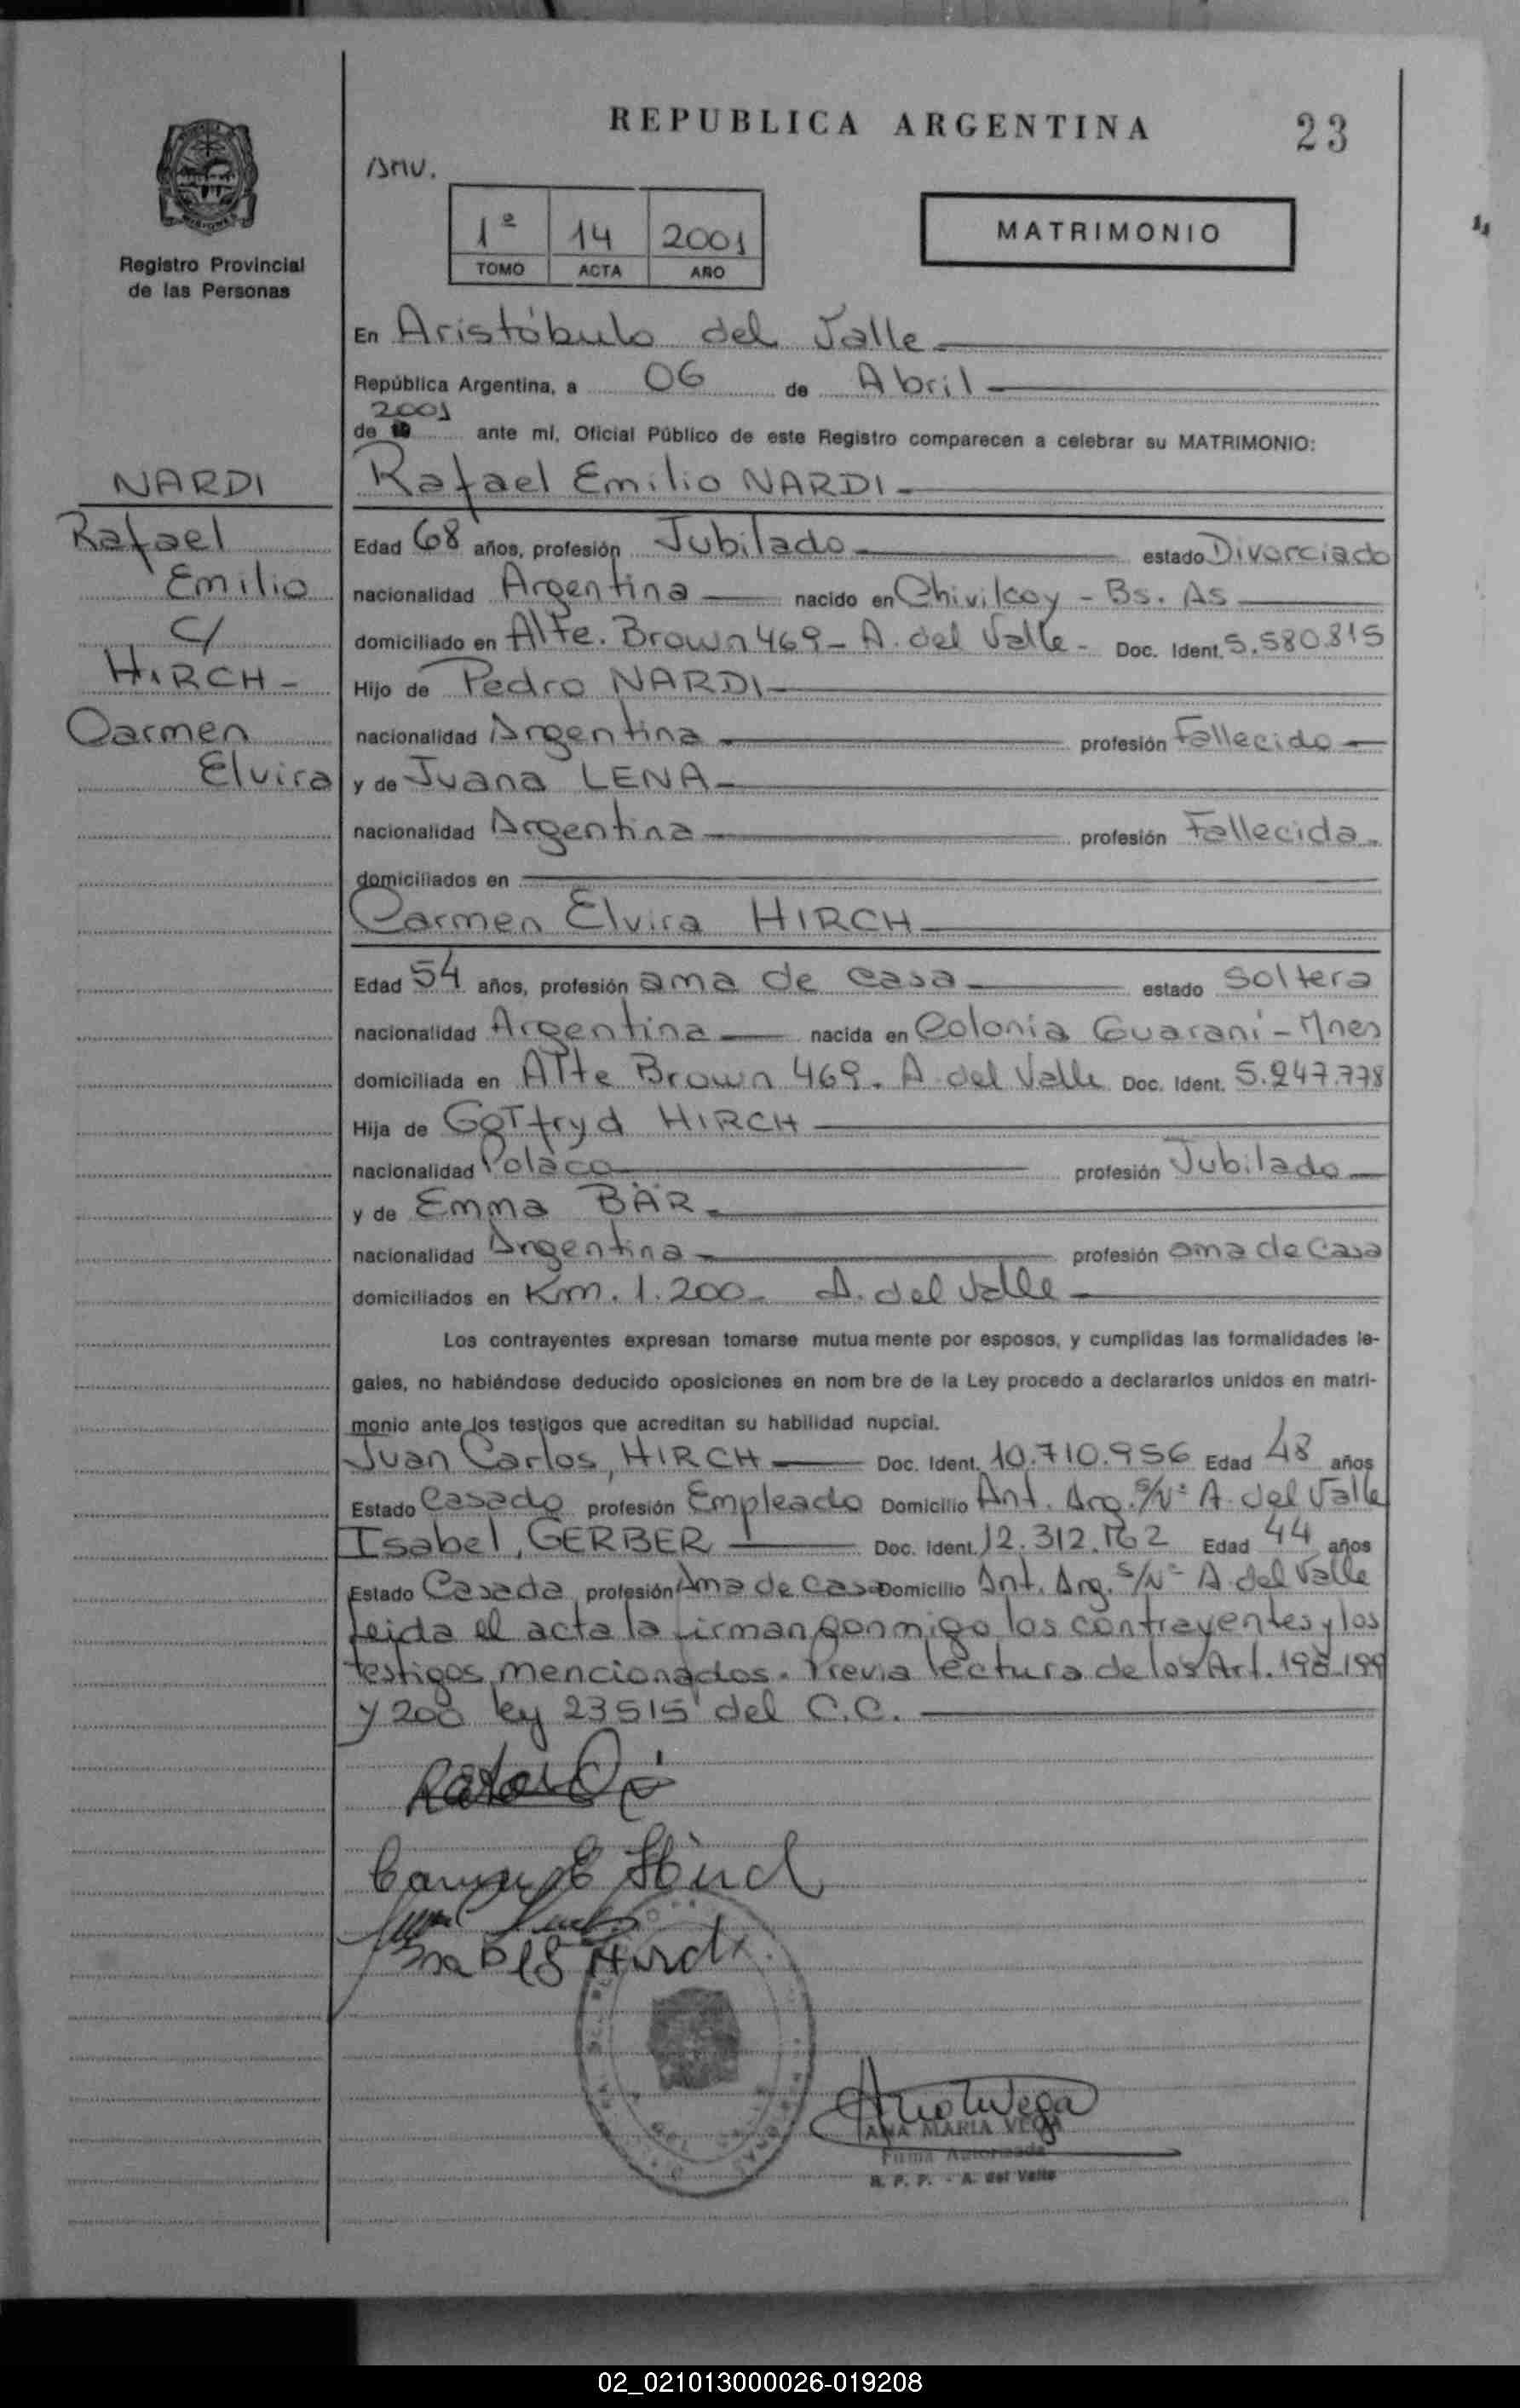 REPUBLICA ARGENTINA
23
1ª 14 2001
TOMO ACTA AÑO
MATRIMONIO
Registro Provincial
de las Personas
En Aristóbulo del Valle
República Argentina, a 06 de Abril
2001
de 19 ante mí, Oficial Público de este Registro comparecen a celebrar su MATRIMONIO:
NARDI
Rafael
Emilio
C/
HIRCH-
Carmen
Elvira
Rafael Emilio NARDI-
Edad 68 años, profesión Jubilado estado Divorciado
nacionalidad Argentina nacido en Chivilcoy - Bs. As
domiciliado en Alte. Brown 469- A. del Valle- Doc. Ident. 5.580.815
Hijo de Pedro NARDI
nacionalidad Argentina profesión Fallecido
y de Juana LENA
nacionalidad Argentina profesión Fallecida
domiciliados en
Carmen Elvira HIRCH
Edad 54 años, profesión ama de casa estado Soltera
nacionalidad Argentina nacida en Colonia Guaraní - Mnes
domiciliada en Alte Brown 469. A. del Valle Doc. Ident. 5.247.778
Hija de Gottfryd HIRCH
nacionalidad Polaco profesión Jubilado
y de Emma BÄR
nacionalidad Argentina profesión ama de casa
domiciliados en Km. 1.200- A. del Valle
Los contrayentes expresan tomarse mutua mente por esposos, y cumplidas las formalidades le-
gales, no habiéndose deducido oposiciones en nom bre de la Ley procedo a declararlos unidos en matri-
monio ante los testigos que acreditan su habilidad nupcial.
Juan Carlos, HIRCH Doc. Ident. 10.710.956 Edad 48 años
Estado Casado profesión Empleado Domicilio Ant. Arg. S/Nº A. del Valle
Isabel, GERBER Doc. Ident. 12.312.162 Edad 44 años
Estado Casada profesión Ama de Casa Domicilio Ant. Arg. S/Nº A. del Valle
Leida el acta la firman conmigo los contrayentes y los
testigos mencionados. Previa lectura de los Art. 198-199
y 200 ley 23515 del C.C.
ANA MARIA VEGA
Firma Autorizada
R. P. P. - A. del Valle
02_021013000026-019208